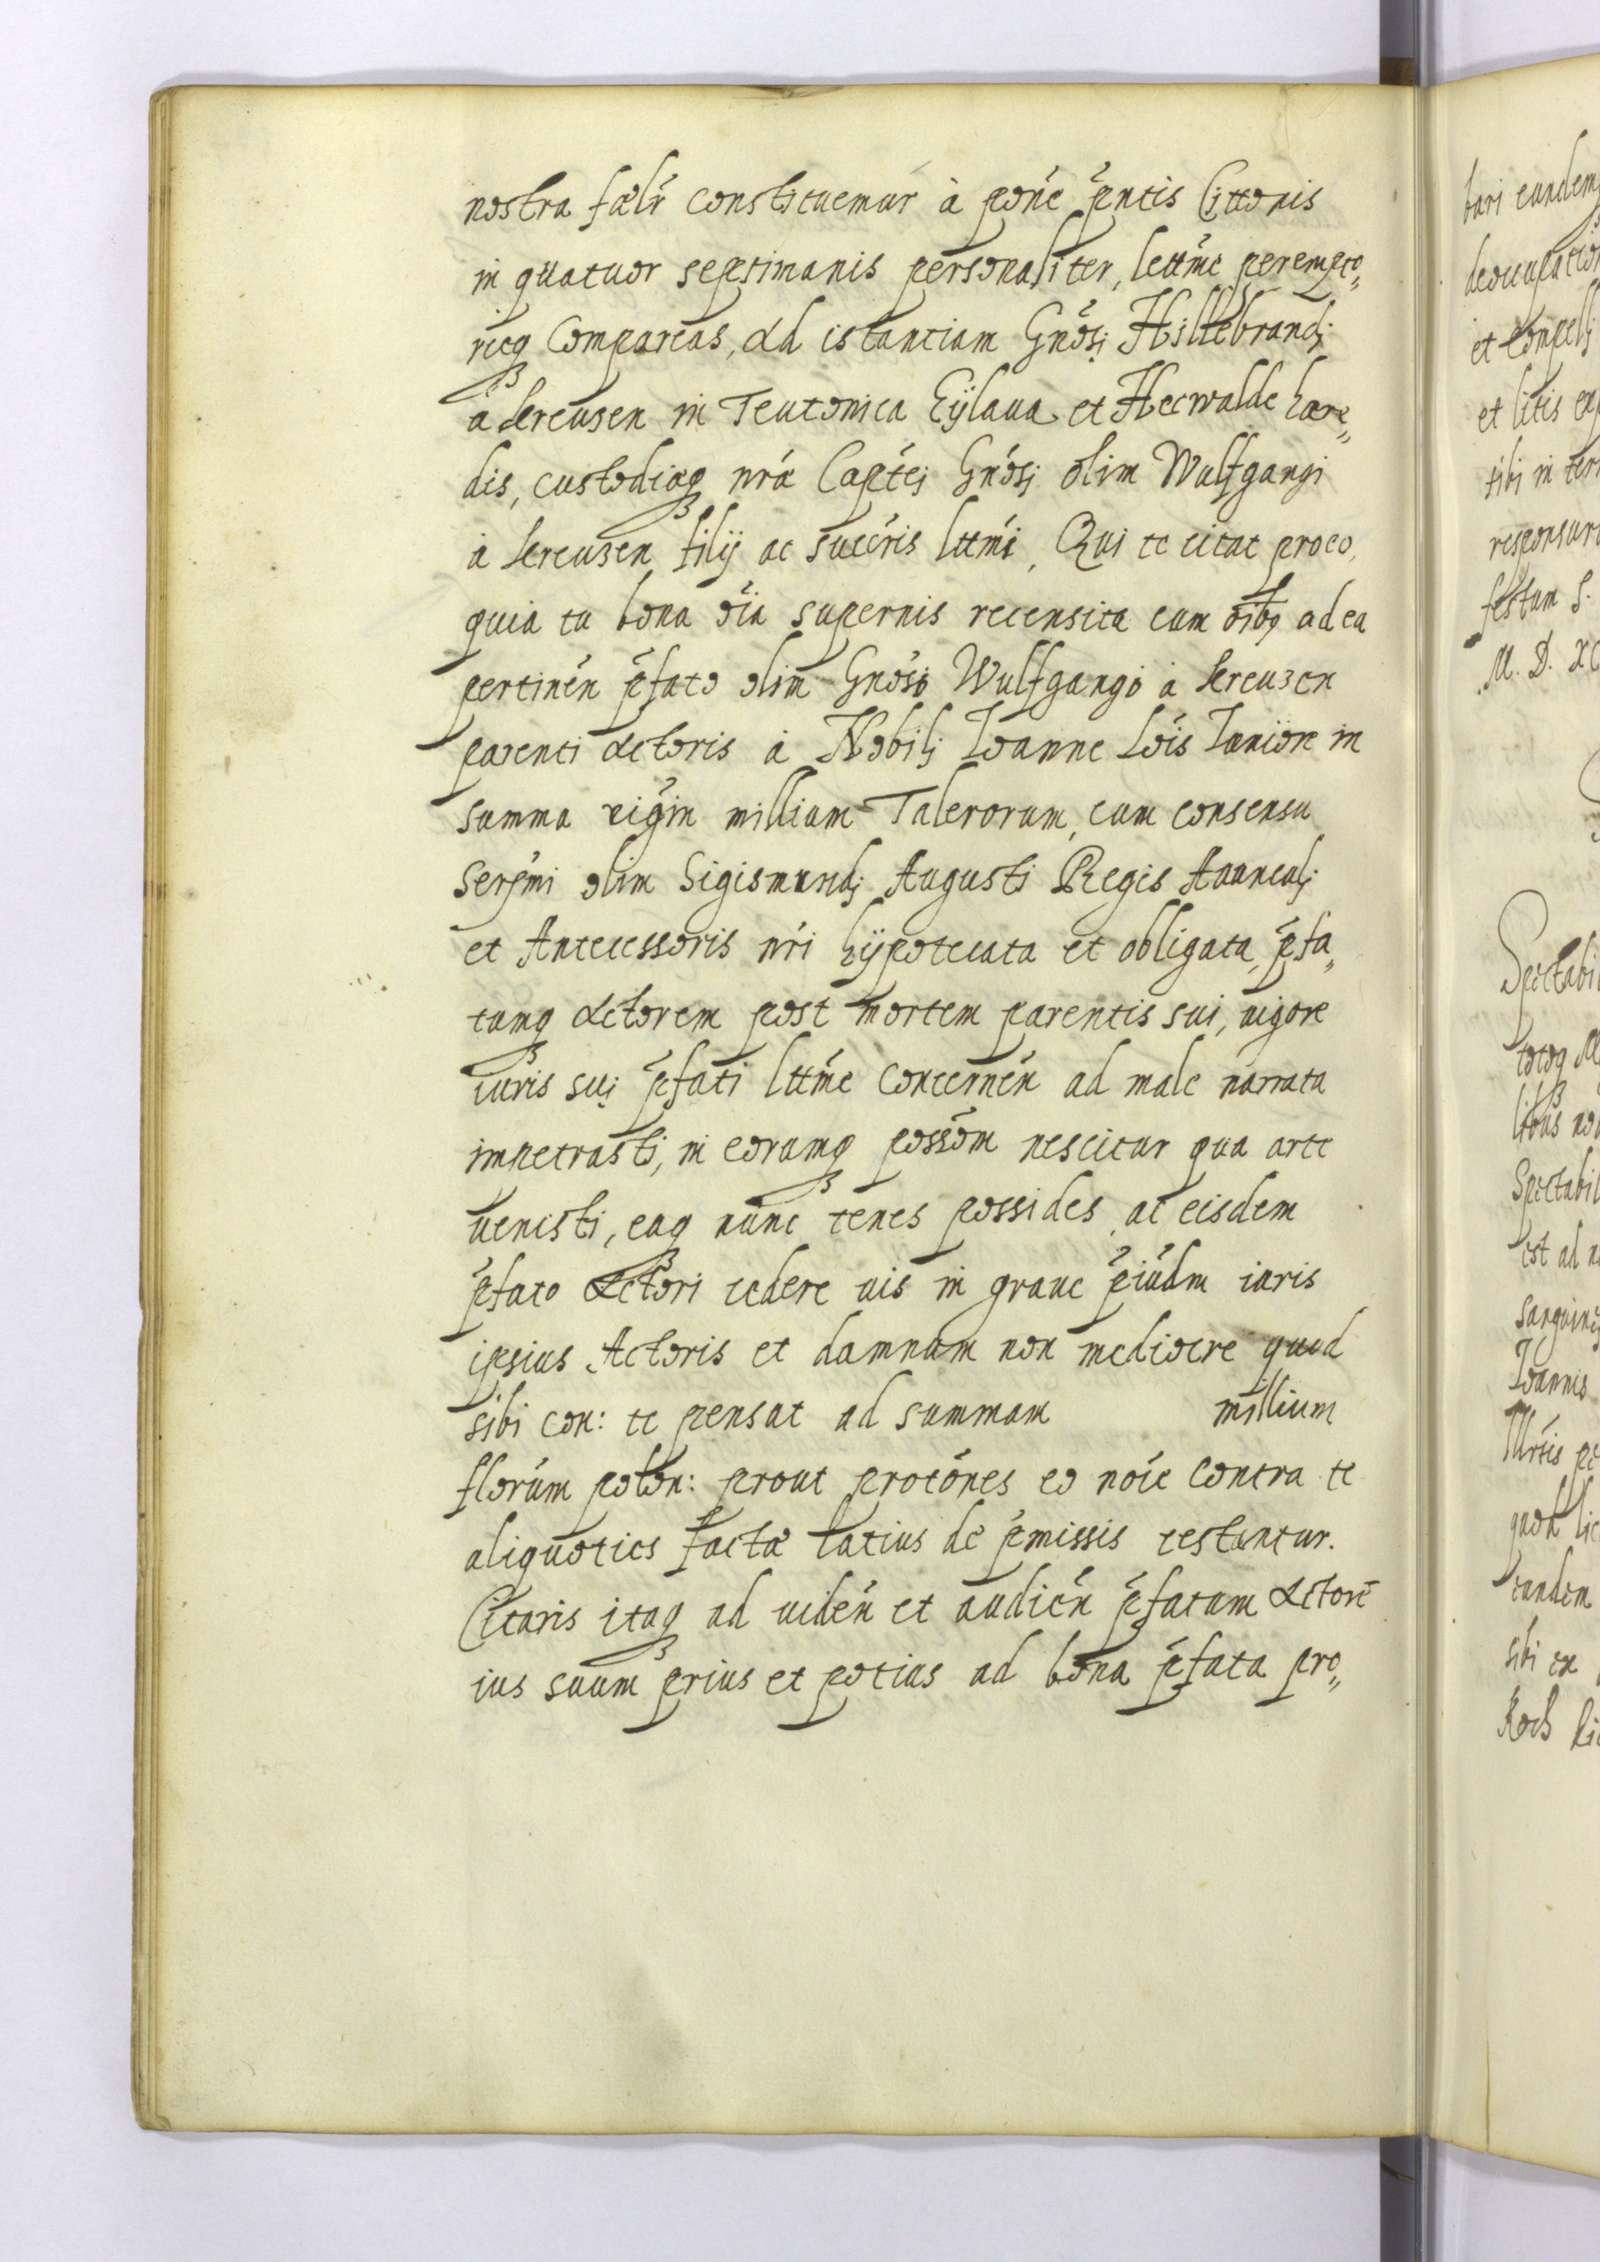 nostra fœlr constituemur à pone pntis Cittonis
in quatuor septimanis personaliter, lettme perempto„
rieq Compareas, Ad istantiam Gnosi Hillebrandi
a kreusen in Teutonica Eÿlaua et Hecwalde hære„
dis, custodiæq nræ Captei Gnosi olim Wulfgangi
à kreuzen filij ac succris lttmi, Qui te citat pro eo,
quia tu bona oia supernis recensita cum oibq ad ea
pertinen pfato olim Gnoso Wulfgango à kreuzen
parenti Actoris à Nobili Ioanne Lois Iuniore in
summa vigin millium Talerorum, cum consensu
Sermi olim Sigismundi Augusti Regis Auunculi
et Antecessoris nri hÿpotecata et obligata, pfa„
tumq Actorem post mortem parentis sui, uigore
iuris sui pfati lttme concernen ad male narrata
impetrasti, in eorumq possom nescitur qua arte
uenisti, eaq nunc tenes possides, ac eisdem
pfato Actori cedere uis in graue piudm iuris
ipsius Actoris et damnum non mediocre quod
sibi con: te pensat ad summam millium
florum polon: prout protones eo noie contra te
aliquoties factæ latius de pmissis testantur.
Citaris itaq ad uiden et audien pfatum Actorē
ius suum prius et potius ad bona pfata pro„
bari eundem
et
et litis
sibi in
festum S.
M. D.
Ioannis
quod
eundem
sibi